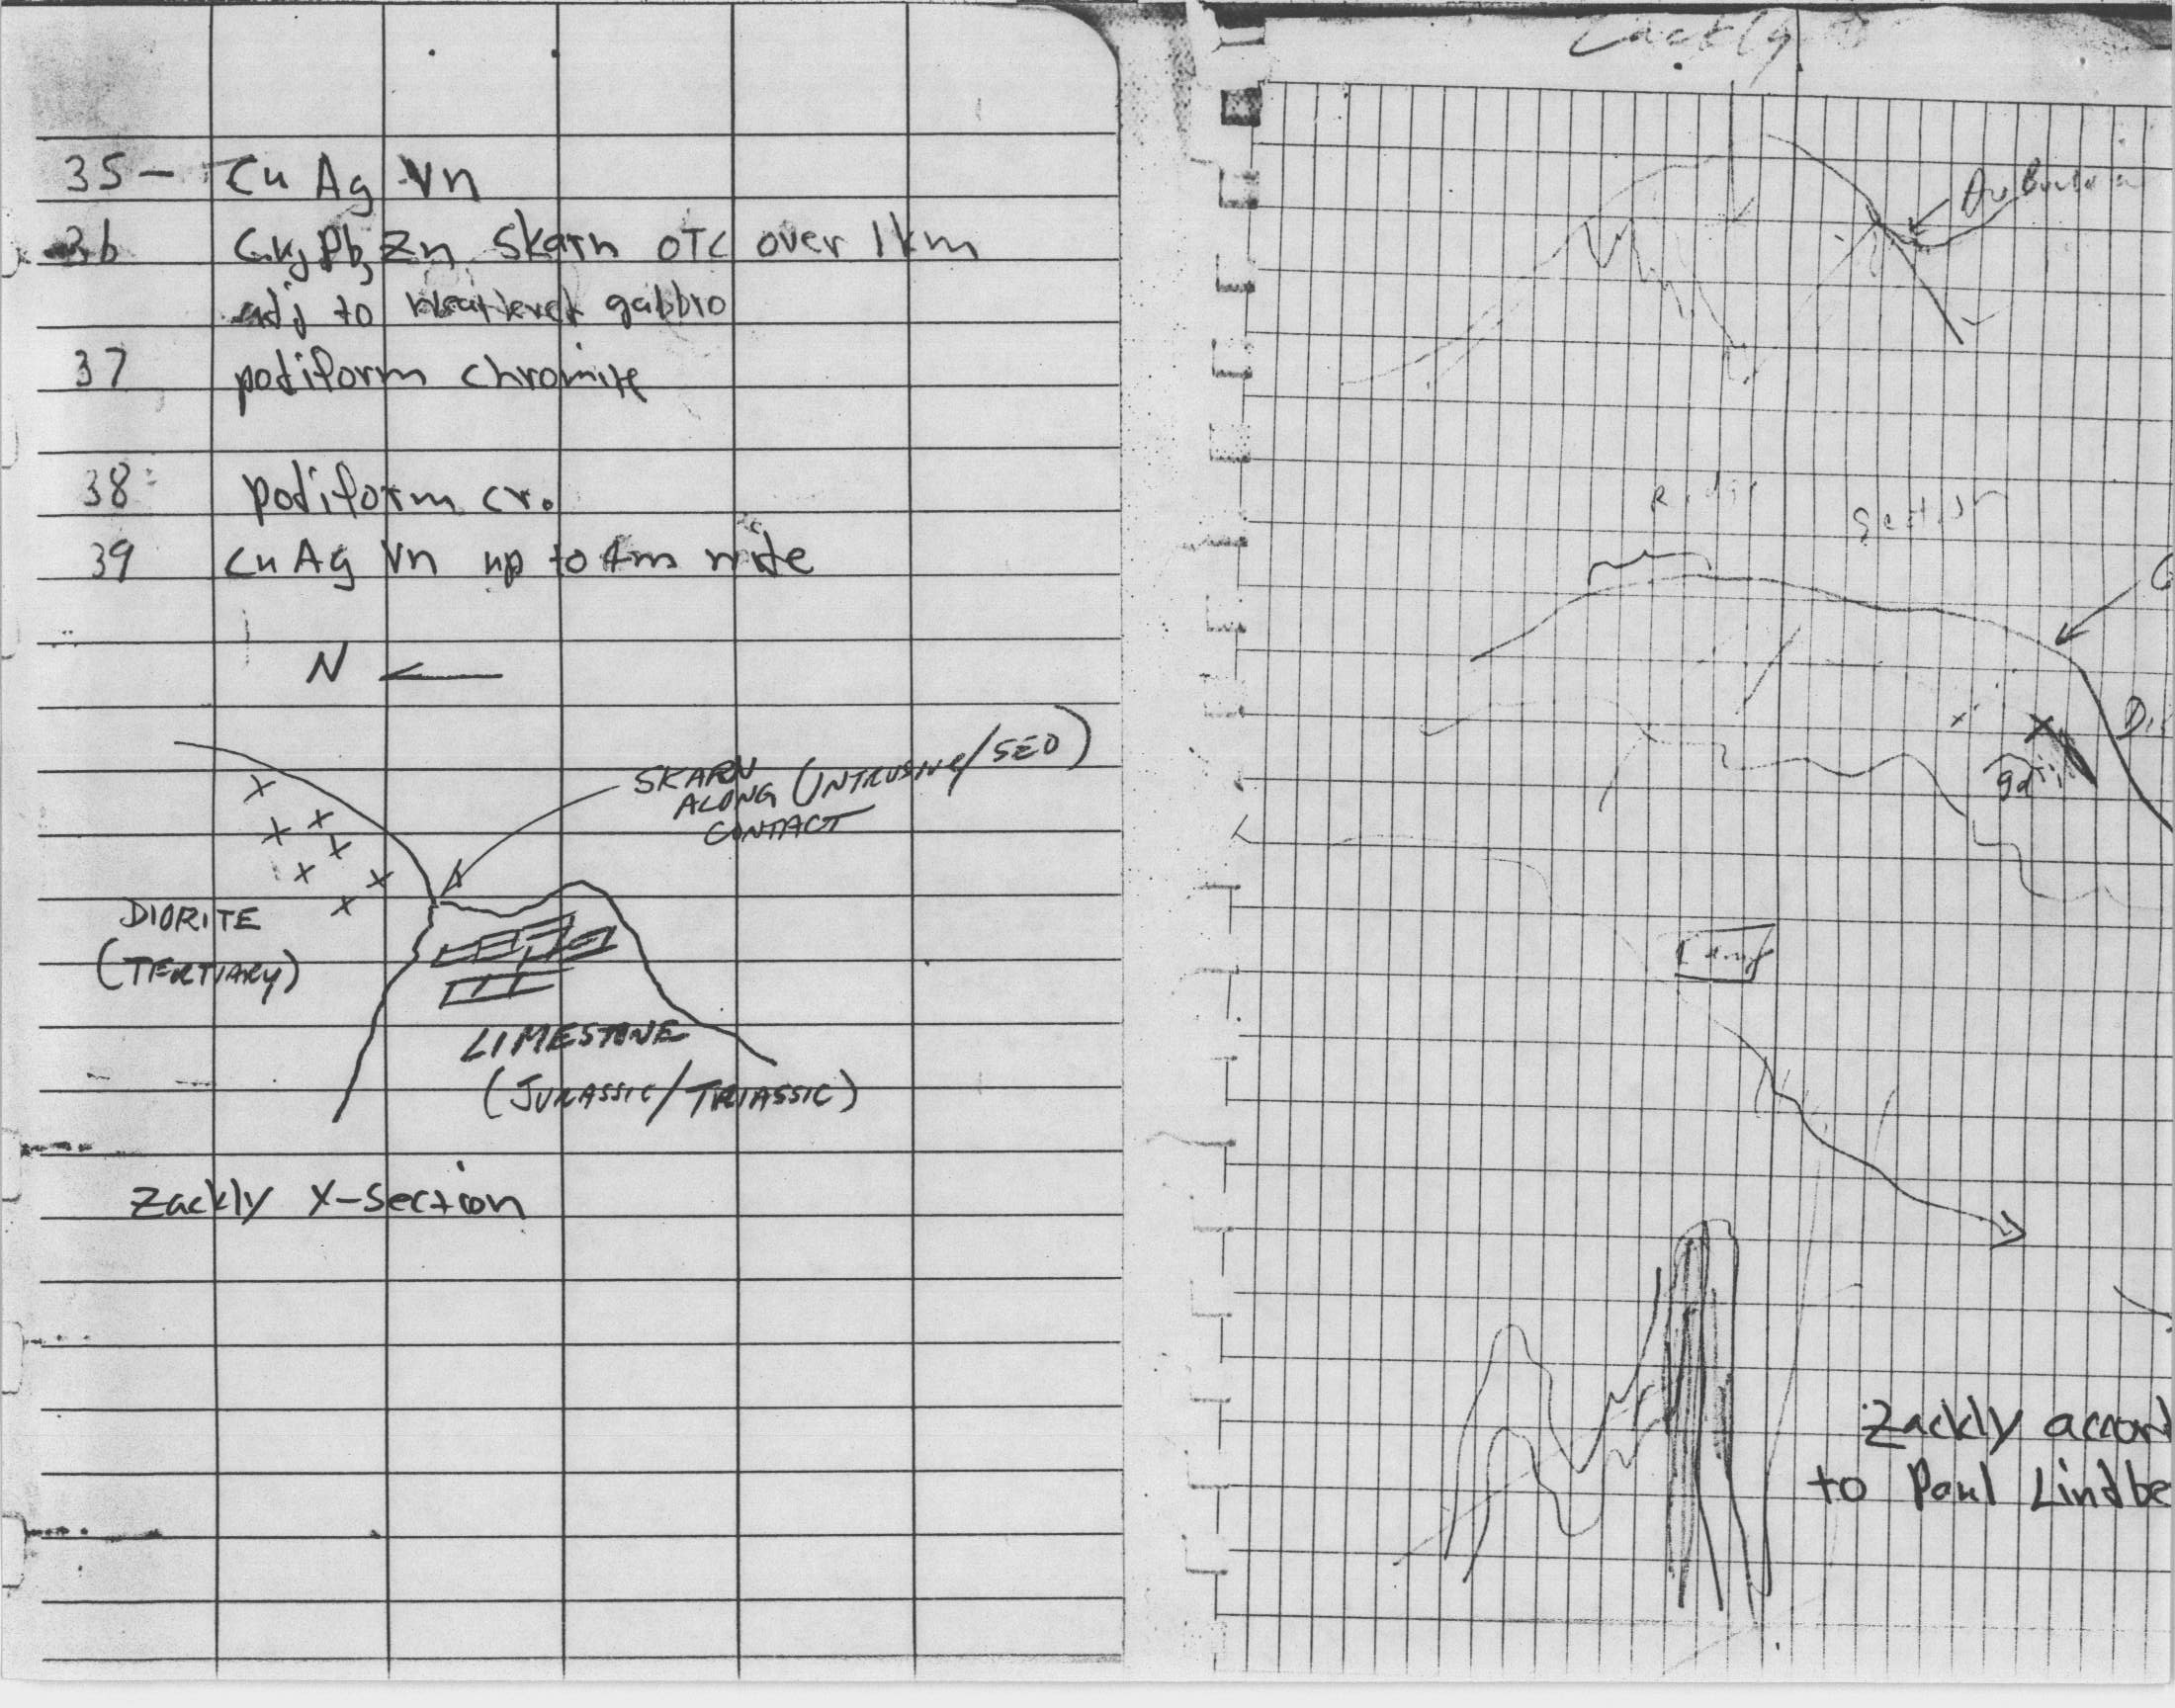 35 - Cu Ag Vn
36 Cu, Pb, Zn Skarn OTC over 1km
adj to gabbro
37 podiform chromite
38 podiform cr.
39 Cu Ag Vn up to 4m wide
N
SKARN
ALONG (INTRUSIVE/SED)
CONTACT
DIORITE
(TERTIARY)
LIMESTONE
(JURASSIC/TRIASSIC)
Zackly X-Section
Zackly
Section
Camp
Zackly accord
to Paul Lindbe